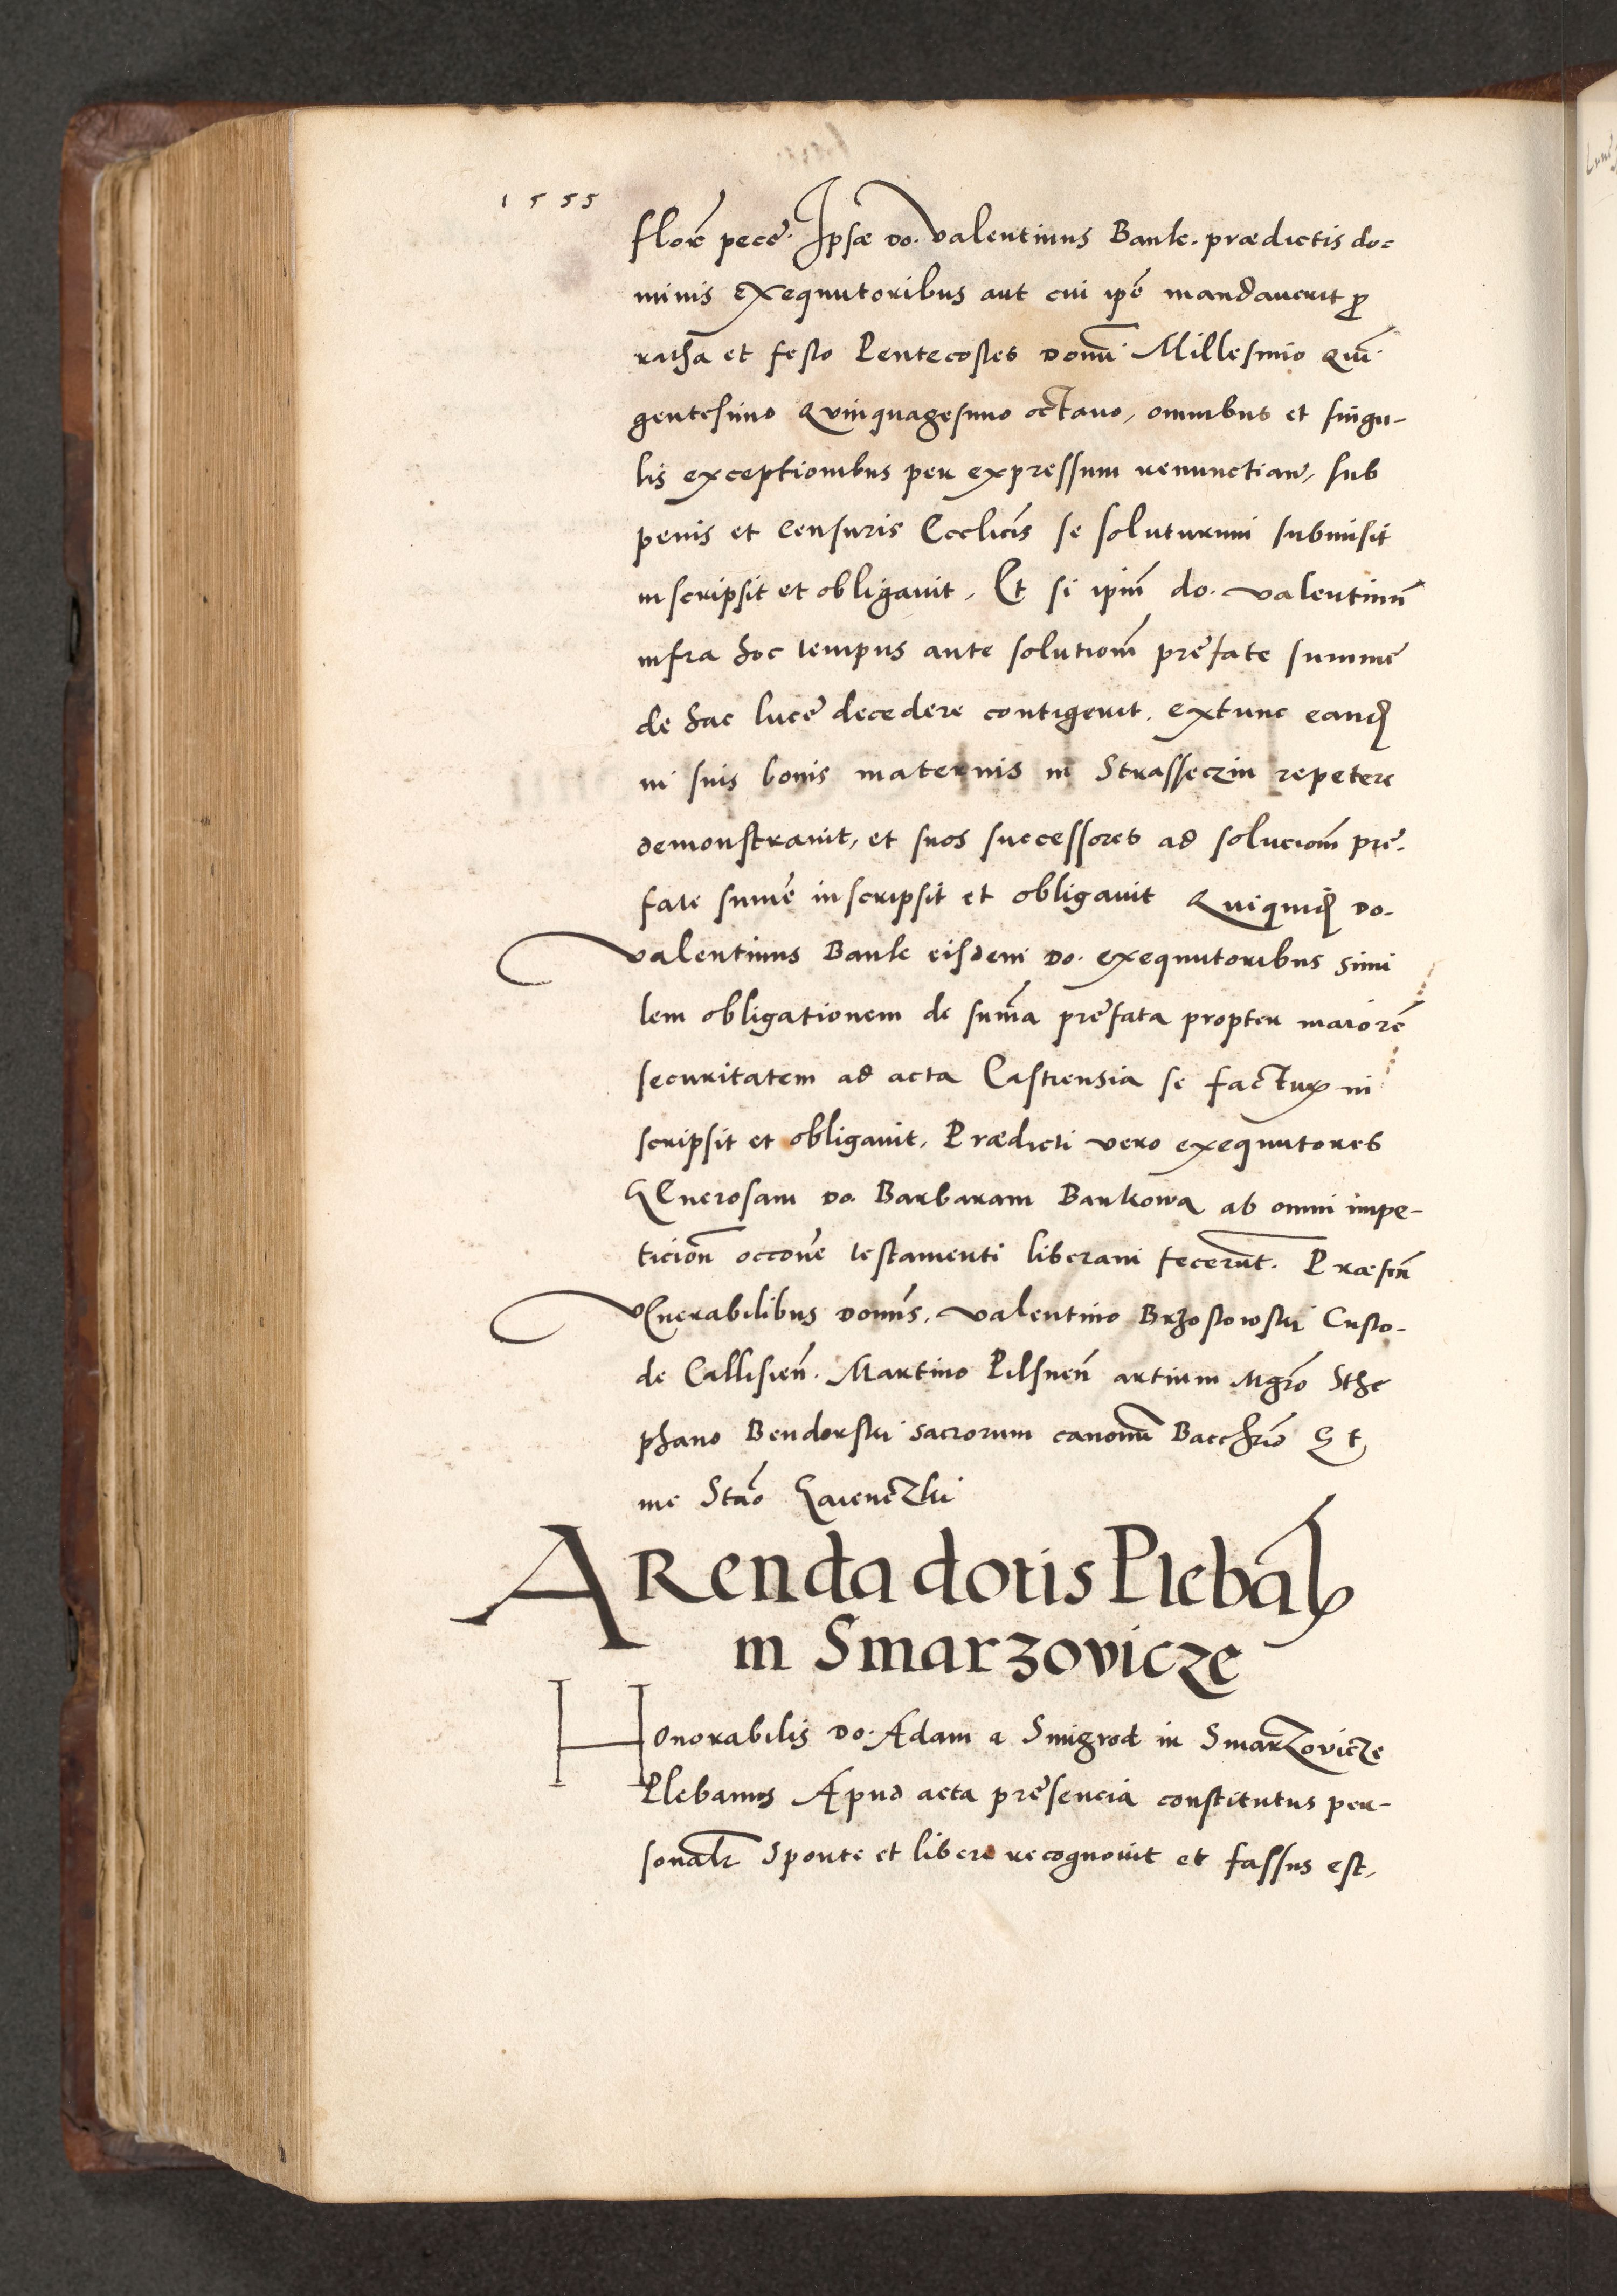 1555
florē pecē. Ipsæ do. valentinus Bank. prædictis do-
minis exequutoribus aut cui ipē mandaverit p
ratha et festo Pentecostes domī Millesimo Quī
gentesimo Quinquagesimo octavo, omnibus et singu-
lis exceptionibus per expressum renunctian, sub
penis et censuris Ecclicis se soluturum submisit
inscripsit et obligavit. Et si ipm̄ do. valentinū
infra hoc tempus ante solutiom̄ prefate summe
de hac luce decedere contigerit. extunc eand
in suis bonis maternis in Strasseczin repetere
demonstravit, et suos successores ad soluciom̄ pre-
fate sum̄e inscripsit et obligavit Quiquid do.
valentinus Bank eisdem do. exequutoribus simi
lem obligationem de sum̄a prefata propter maiorē
securitatem ad acta Castrensia se factur in
scripsit et obligavit. Prædicti vero exequutores
GEnerosam do. Barbaram Bankowa ab omni impe-
ticion̄ occone testamenti liberam fecerūt. Præsen̄
vEnerabilibus domīs. valentino Brzostowski Custo-
de Callisien̄. Martino Pilsnen̄ artium Mgrō Sthe
phano Bendorski sacrorum canonū Bacchrīo Et
me Staō Gaieneczki
ARenda dotis Plebal
in Smarzovicze
Honorabilis do. Adam a Smigrod in Smarzovicze
Plebanus Apud acta presencia constitutus per-
sonalr̄ sponte et libere recognovit et fassus est,